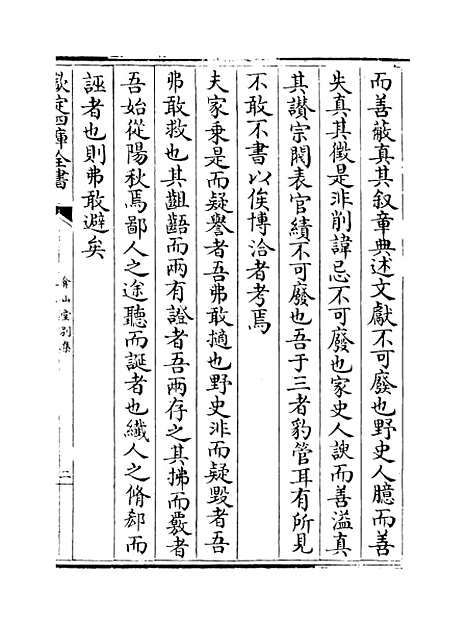 而善蔽真其叙章典述文獻不可廢也野史人臆而善
失真其徵是非削諱忌不可廢也家史人諛而善溢真
其讃宗閥表官績不可廢也吾于三者豹管耳有所見
不敢不書以俟博洽者考焉
夫家乗是而疑譽者吾弗敢擿也野史非而疑毀者吾
弗敢救也其齟齬而兩有證者吾兩存之其拂而覈者
吾始從陽秋焉鄙人之途聽而誕者也纎人之脩郄而
誣者也則弗敢避矣
欽定四庫全書
弇山堂别集
二